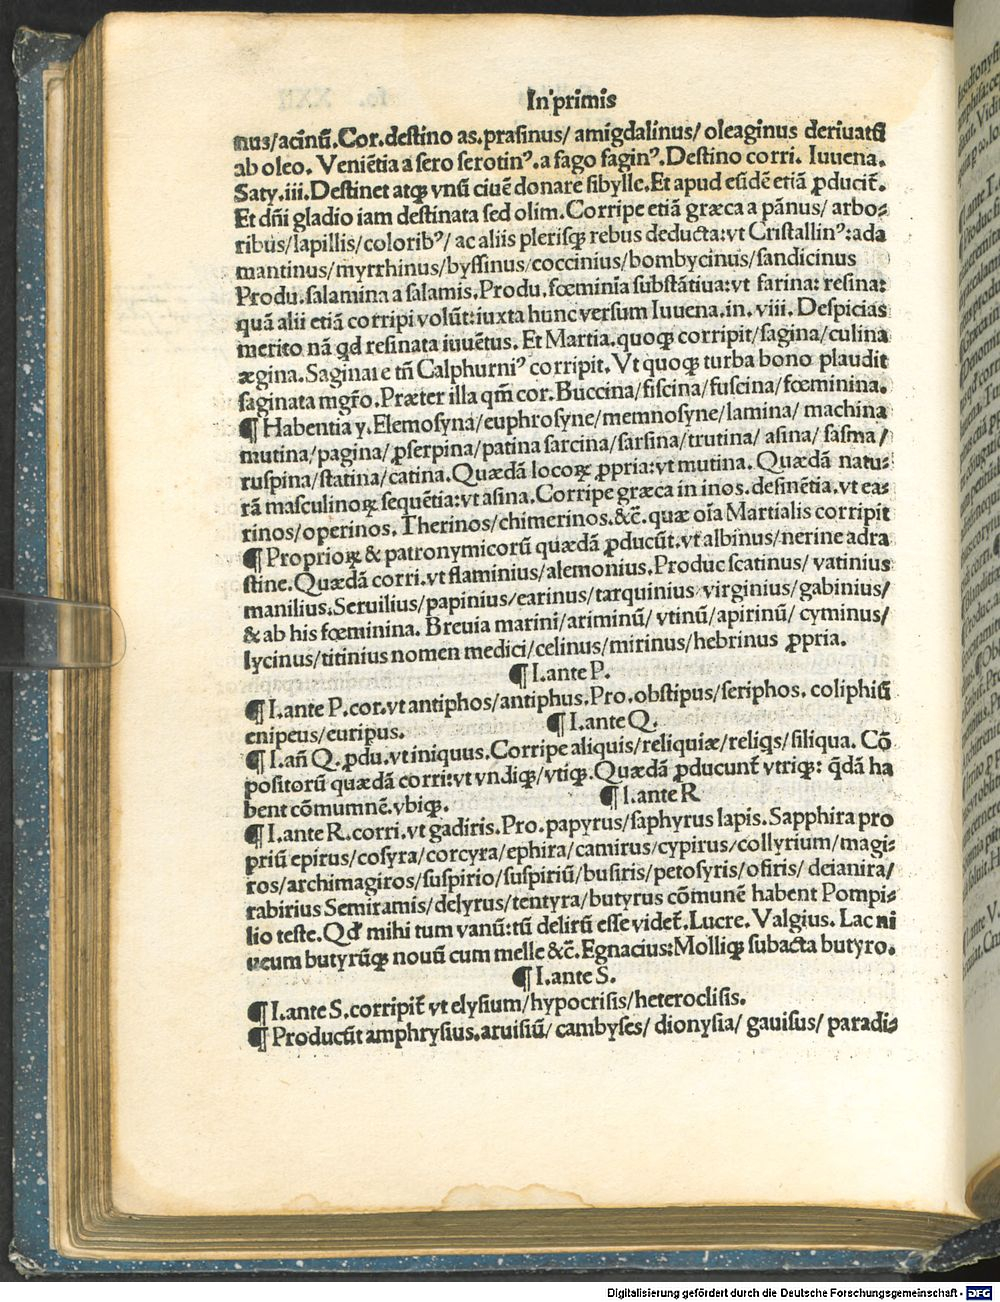 In primis
nus/acinū.Cor.destino as.prasinus/ amigdalinus/ oleaginus deriuatū
ab oleo. Veniētia a sero serotinꝰ.a fago faginꝰ.Destino corri. Iuuena.
Saty.iii.Destinet atqꝫ vnū ciuē donare sibylle.Et apud eūdē etiā ꝓducit̄.
Et dn̄i gladio iam destinata sed olim.Corripe etiā græca a pānus/ arbo⸗
ribus/lapillis/coloribꝰ/ ac aliis plerisqꝫ rebus deducta:vt Cristallinꝰ:ada
mantinus/myrrhinus/byssinus/coccinius/bombycinus/sandicinus
Produ.salamina a salamis.Produ.fœminia substātiua:vt farina: resina:
quā alii etiā corripi volūt:iuxta hunc versum Iuuena.in. viii. Despicias
merito nā qd resinata iuuētus. Et Martia. quoqꝫ corripit/sagina/culina
ægina.Saginare tn̄ Calphurniꝰ corripit. Vt quoqꝫ turba bono plaudit
saginata mgr̄o.Præter illa qm̄ cor.Buccina/fiscina/fuscina/fœminina.
¶ Habentia y.Elemosyna/euphrosyne/memnosyne/lamina/ machina
mutina/pagina/ ꝓserpina/patina sarcina/sarsina/trutina/ asina/ sasma/
ruspina/statina/catina.Quædā locoꝝ ꝓpria:vt mutina. Quædā natu⸗
rā masculinoꝝ sequētia:vt asina.Corripe græca in inos. desinētia.vt ea⸗
rinos/operinos. Therinos/chimerinos.&c̄. quæ oīa Martialis corripit
¶ Proprioꝝ & patronymicorū quædā ꝓducūt.vt albinus/nerine adra
stine.Quædā corri.vt flaminius/alemonius.Produc scatinus/ vatinius
manilius.Seruilius/papinius/earinus/tarquinius virginius/gabinius/
& ab his fœminina. Breuia marini/ariminū/ vtinū/apirinū/ cyminus/
lycinus/titinius nomen medici/celinus/mirinus/hebrinus ꝓpria.
¶ I.ante P.
¶ I.ante P.cor.vt antiphos/antiphus.Pro.obstipus/seriphos. coliphiū
enipeus/euripus.
¶ I.ante Q.
¶ I.an̄ Q. ꝓdu.vt iniquus.Corripe aliquis/reliquiæ/reliqs/siliqua. Cō
positorū quædā corri:vt vndiqꝫ/vtiqꝫ.Quædā ꝓducunt̄ vtriqꝫ: qdā ha
bent cōmumnē.vbiqꝫ.
¶ I.ante R
¶ I.ante R.corri.vt gadiris.Pro.papyrus/saphyrus lapis.Sapphira pro
priū epirus/cosyra/corcyra/ephira/camirus/cypirus/collyrium/magi⸗
ros/archimagiros/suspirio/suspiriū/busiris/petosyris/osiris/ deianira/
rabirius Semiramis/delyrus/tentyra/butyrus cōmunē habent Pompi⸗
lio teste.Qd mihi tum vanū:tū delirū esse videt̄.Lucre. Valgius. Lac ni
ueum butyrūqꝫ nouū cum melle &c̄. Egnacius:Molliqꝫ subacta butyro.
¶ I.ante S.
¶ I.ante S.corripit̄ vt elysium/hypocrisis/heteroclisis.
¶ Producūt amphrysius.aruisiū/ cambyses/ dionysia/ gauisus/ paradi⸗
Digitalisierung gefördert durch die Deutsche Forschungsgemeinschaft - DFG